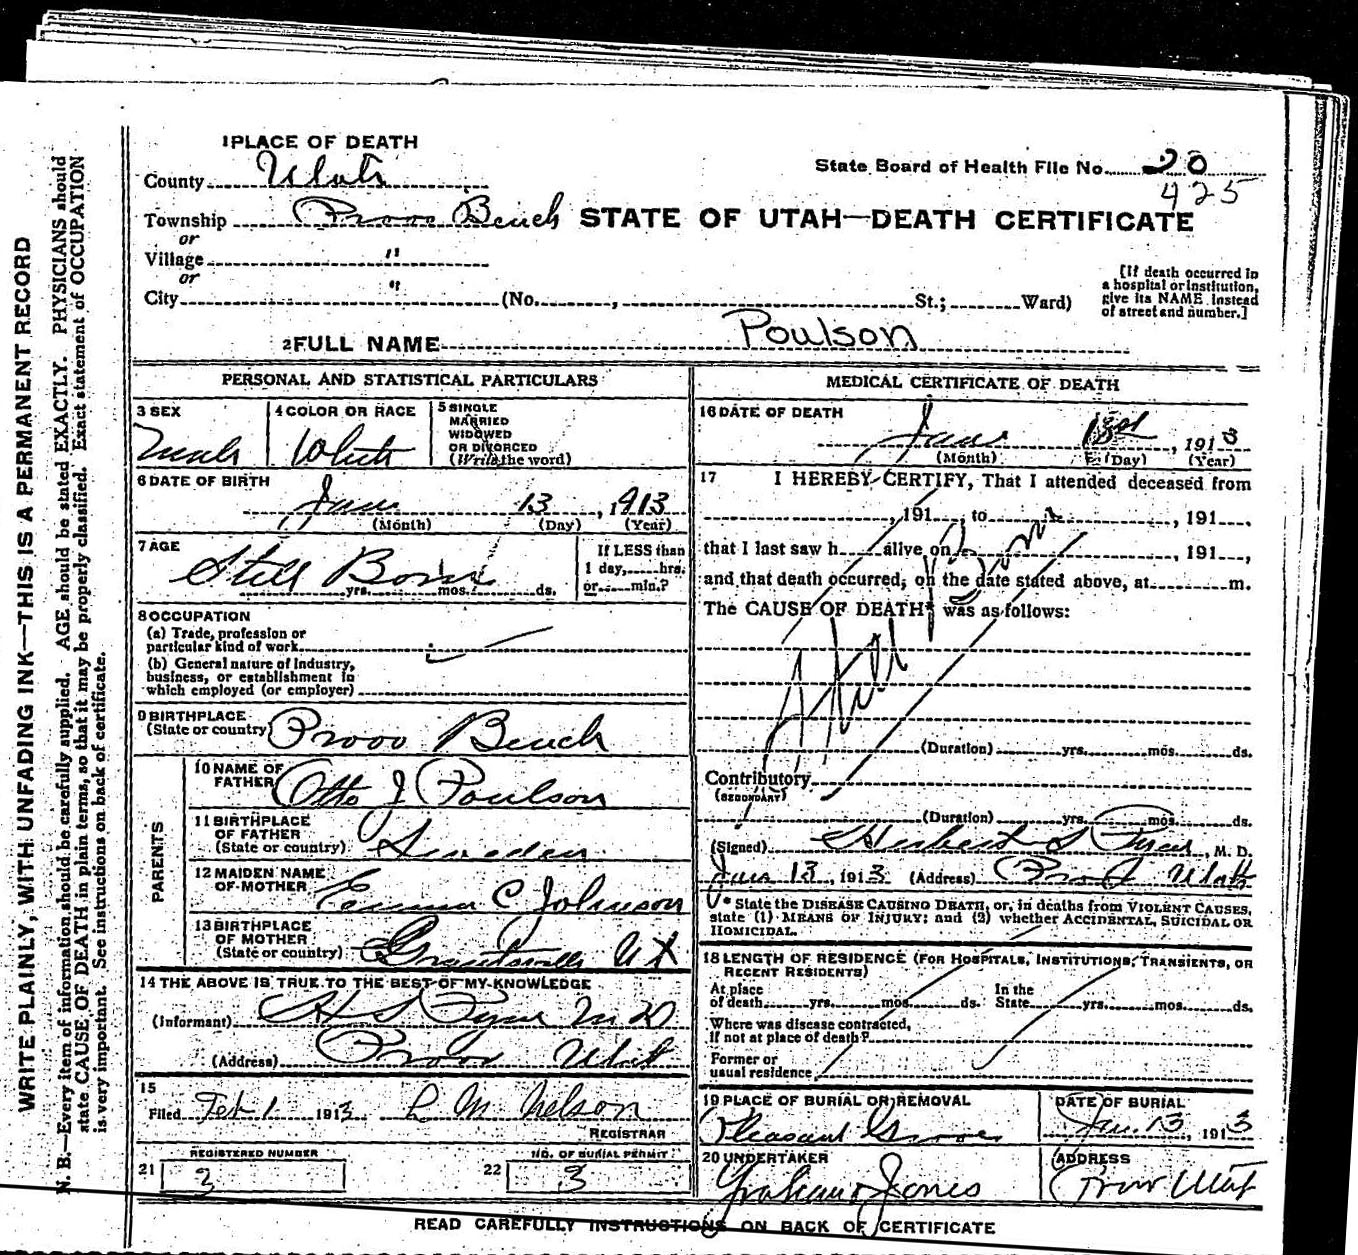 1 PLACE OF DEATH
County Utah
State Board of Health File No. 20
425
Township Provo Bench
STATE OF UTAH—DEATH CERTIFICATE
or
Village "
or
City " (No. , St.; Ward)
[If death occurred in
a hospital or institution,
give its NAME instead
of street and number.]
2 FULL NAME Poulson
PERSONAL AND STATISTICAL PARTICULARS
3 SEX
Male
4 COLOR OR RACE
White
5 SINGLE
MARRIED
WIDOWED
OR DIVORCED
(Write the word)
6 DATE OF BIRTH
Jan 13, 1913
(Month) (Day) (Year)
7 AGE
Still Born
yrs. mos. ds.
If LESS than
1 day, hrs.
or min.?
8 OCCUPATION
(a) Trade, profession or
particular kind of work
(b) General nature of industry,
business, or establishment in
which employed (or employer)
9 BIRTHPLACE
(State or country) Provo Bench
PARENTS
10 NAME OF
FATHER Otto J Poulson
11 BIRTHPLACE
OF FATHER
(State or country) Sweden
12 MAIDEN NAME
OF MOTHER Emma C Johnson
13 BIRTHPLACE
OF MOTHER
(State or country) Grantsville Ut
14 THE ABOVE IS TRUE TO THE BEST OF MY KNOWLEDGE
(Informant) H S Pyne M D
(Address) Provo Utah
15
Filed Feb 1 1913 L M Nelson
REGISTRAR
REGISTERED NUMBER
21 3
NO. OF BURIAL PERMIT
22 3
MEDICAL CERTIFICATE OF DEATH
16 DATE OF DEATH
Jan 13, 1913
(Month) (Day) (Year)
17 I HEREBY CERTIFY, That I attended deceased from
, 191 , to , 191 ,
that I last saw h alive on , 191 ,
and that death occurred, on the date stated above, at m.
The CAUSE OF DEATH* was as follows:
Still Born
(Duration) yrs. mos. ds.
Contributory
(SECONDARY)
(Duration) yrs. mos. ds.
(Signed) Herbert S Pyne, M. D.
Jan 13, 1913 (Address) Provo Utah
* State the DISEASE CAUSING DEATH, or, in deaths from VIOLENT CAUSES,
state (1) MEANS OF INJURY; and (2) whether ACCIDENTAL, SUICIDAL OR
HOMICIDAL.
18 LENGTH OF RESIDENCE (FOR HOSPITALS, INSTITUTIONS, TRANSIENTS, OR
RECENT RESIDENTS)
At place
of death yrs. mos. ds.
In the
State yrs. mos. ds.
Where was disease contracted,
If not at place of death?
Former or
usual residence
19 PLACE OF BURIAL OR REMOVAL
Pleasant Grove
DATE OF BURIAL
Jan. 13, 1913
20 UNDERTAKER
Graham & Jones
ADDRESS
Provo Utah
READ CAREFULLY INSTRUCTIONS ON BACK OF CERTIFICATE
WRITE PLAINLY, WITH UNFADING INK—THIS IS A PERMANENT RECORD
N. B.—Every item of information should be carefully supplied. AGE should be stated EXACTLY. PHYSICIANS should
state CAUSE OF DEATH in plain terms, so that it may be properly classified. Exact statement of OCCUPATION
is very important. See instructions on back of certificate.